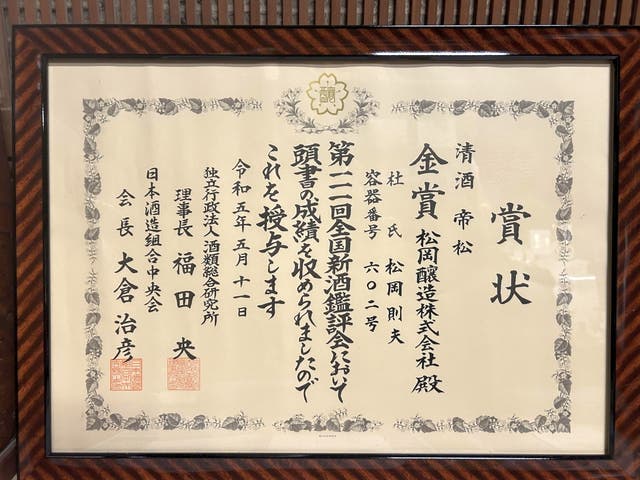 賞状
清酒 帝松
金賞 松岡醸造株式会社 殿
杜氏 松岡則夫
容器番号 六〇二号
第一一一回全国新酒鑑評会において
頭書の成績を収められましたので
これを授与します
令和五年五月十一日
独立行政法人酒類総合研究所
理事長 福田央
日本酒造組合中央会
会長 大倉治彦